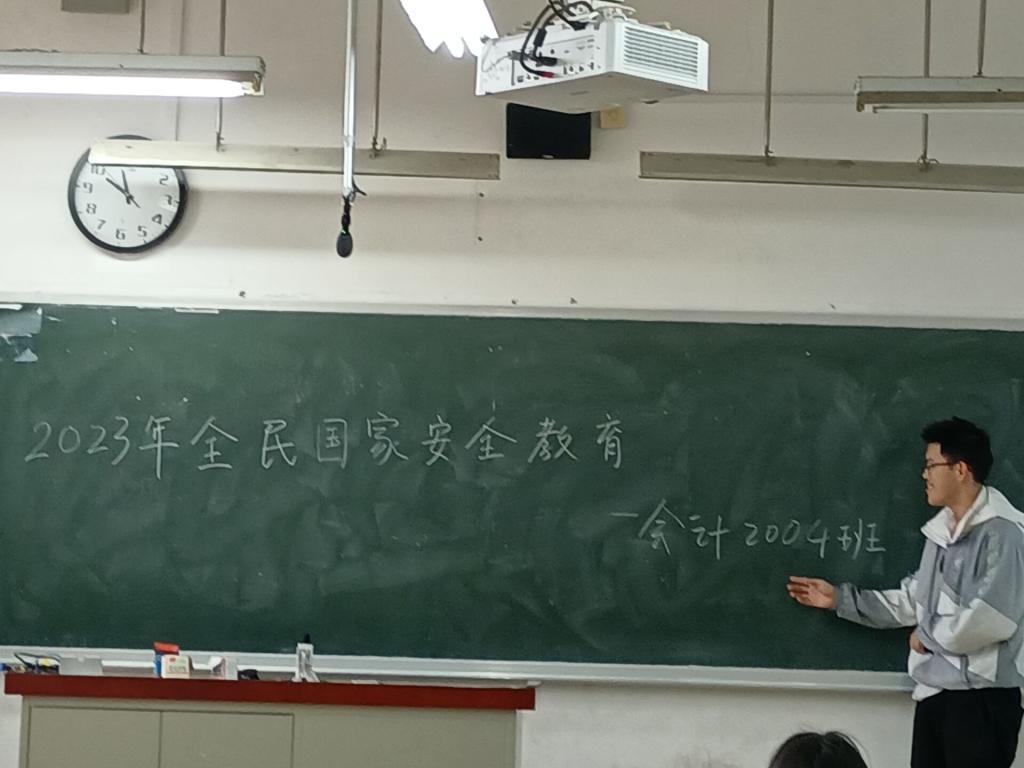 2023年全民国家安全教育
一会计2004班
10 2
9 3
8 4
7 6 5